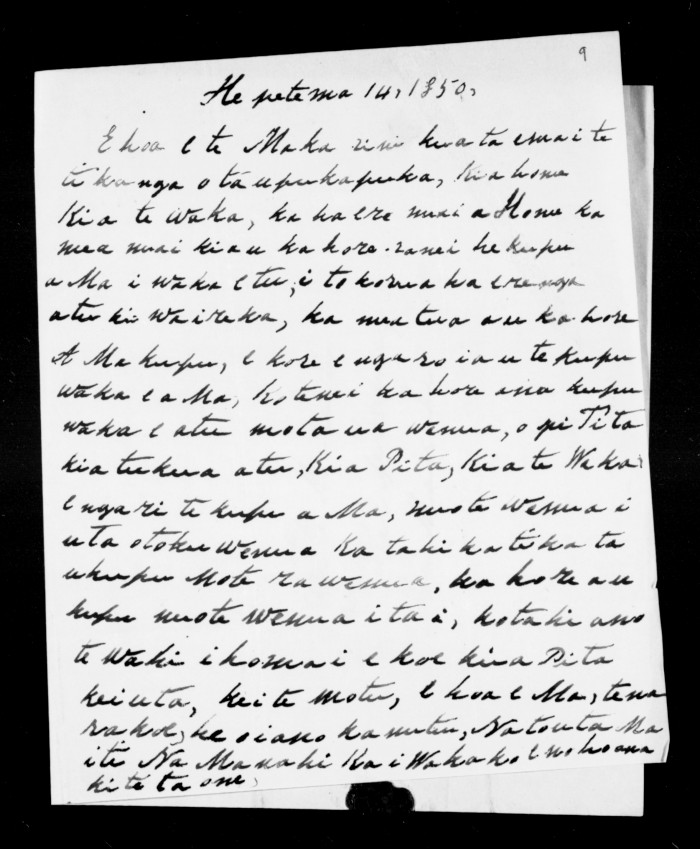 9
He petema 14, 1850,
E hoa e te Maka rini kua ta e mai te
ti ka nga o ta u pukapuka, Kia hone
Kia te waka, ka ha ere mai a Hone ka
mea mai kia u ka hore ranei he kupu
a Ma i waka e tu, i to korua ha ere nga
atu ki wai reka, ka mea tua a au ka hore
A Ma kupu, e kore e nga ro ia u te kupu
waka e a Ma, Ko tenei ka hore ano kupu
waka e atu mo ta ua wenua, o pi Tita
kia tukua atu, Kia Pita, Kia te Waka
e nga ri te kupu a Ma, mo te wenua i
uta o toku wenua Ka tahi ka tika ta
u kupu Mo te ra wenua, ka hore a u
kupu mo te wenua i ta i, ko tahi ano
te wahi i ho mai e koe kia Pita
kei uta, kei te motu, E hoa e Ma, tena
ra koe, he oi ano ka mutu, Na to uta Ma
i te Na Manahi Ka i Waka ko e noho ana
ki te ta one,